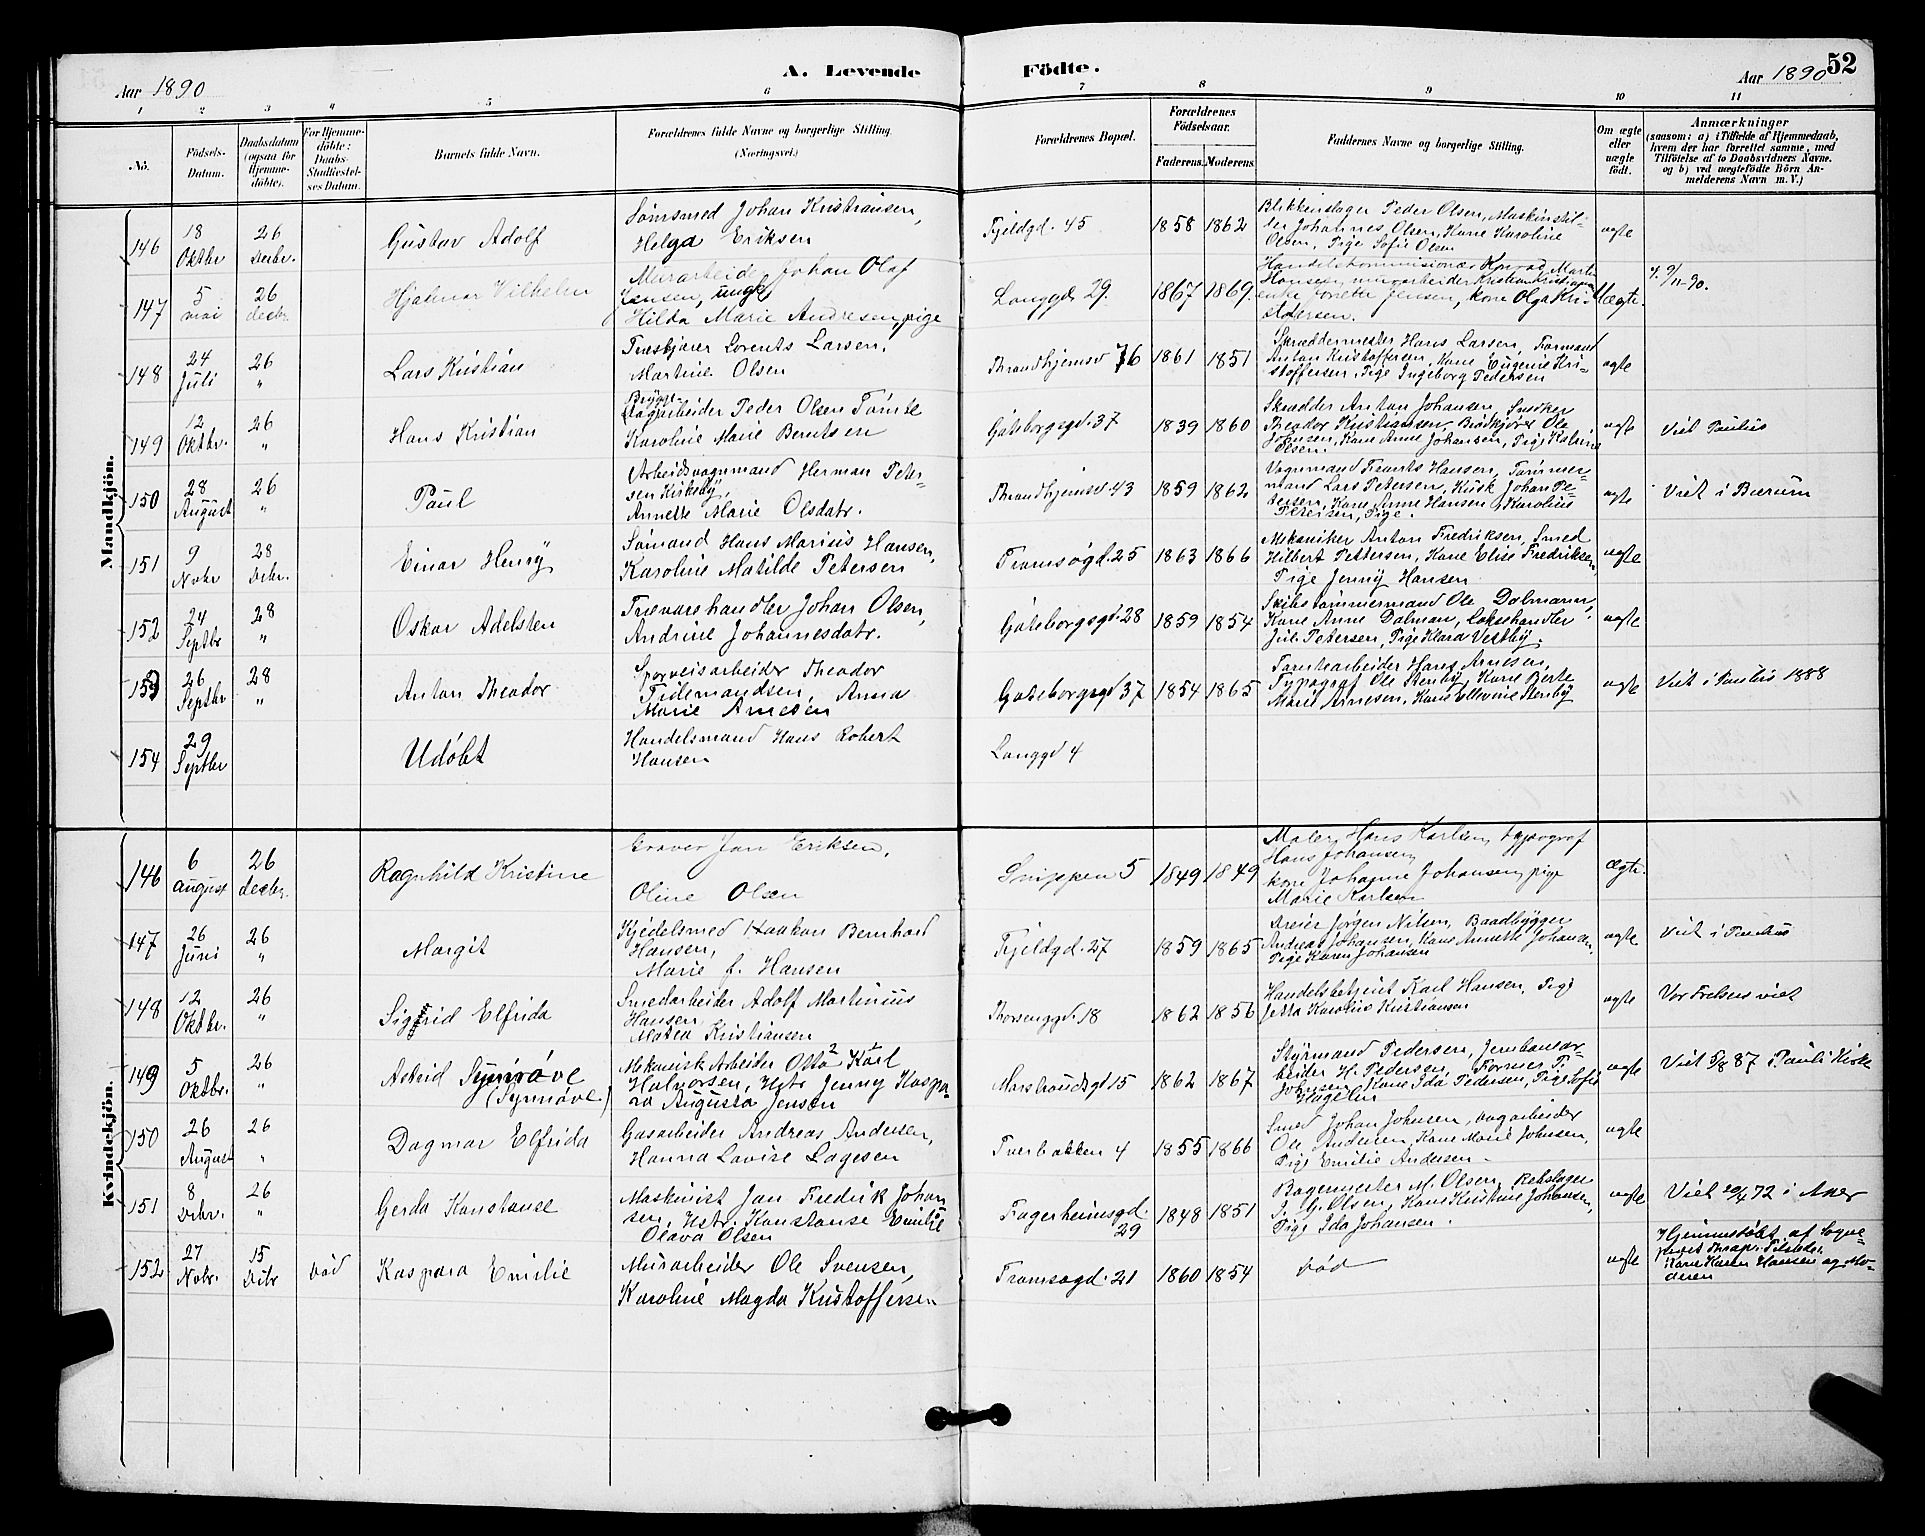 Aar 1890
A. Levende
Födte.
Aar 1890
52
1 2 3 4 5 6 7 8 9 10 11
No.
Födsels-
Datum.
Daabsdatum
(ogsaa for
Hjemme-
döbte).
For Hjemme-
döbte:
Daabs-
Stadfæstel-
ses Datum.
Barnets fulde Navn.
Forældrenes fulde Navne og borgerlige Stilling.
(Næringsvei.)
Forældrenes Bopæl.
Forældrenes
Födselsaar.
Faderens. Moderens.
Faddernes Navne og borgerlige Stilling.
Om ægte
eller
uægte
födt.
Anmærkninger
(saasom: a) i Tilfælde af Hjemmedaab,
hvem der har forrettet samme, med
Tilföielse af to Daabsvidners Navne.
og b) ved uægtefödte Börn An-
melderens Navn m. V.)
Mandkjön.
146 18 Oktbr 26 Decbr. Gustav Adolf
Johan Kristiansen,
Helga Eriksen
Fjeldgd. 45 1858 1862
Blikkenslager Peder Olsen, Maskinstil-
ler Johannes Olsen, Kone Karoline
Olsen, Pige Sofie Olsen
ægte
147 5 mai 26 decbr. Hjalmar Vilhelm
Murarbeider Johan Olaf
Jensen, ungk.
Hilda Marie Andresen, pige
Langgd. 29. 1867 1869.
Handelskommisionær Konrad Martin
Hansen, murarbeider Kristian Kristiansen
enke Jensen, kone Olga Kri-
stiansen.
Uægte.
148 24 Juli 26 " Lars Kristian
Træskjærer Lorents Larsen,
Martine Olsen
Throndhjemsv 76 1861 1851
Skræddermester Hans Larsen, Formand
Anton Kristoffersen, Kone Eugenie Kri-
stoffersen, Pige Ingeborg Pedersen
ægte
149 12 Oktbr. 26 " Hans Kristian
Brygge-
arbeider Peder Olsen Tømte
Karoline Marie Berntsen
Gøteborgsgd. 37 1839 1860
Skrædder Anton Johansen, Snedker
Theodor Kristiansen, Brødkjører Ole
Johnsen, Kone Anne Johansen, Pige
Olsen.
ægte Viet Paulus
150 28 August 26 " Paul
Arbeidsvognmand Herman Peter-
sen Kirkeby,
Annette Marie Olsdatr.
Throndhjemsv 43 1859 1862
Vognmand Frants Hansen, Tømmer-
mand Lars Petersen, Kusk Johan Pe-
dersen, Kone Anne Hansen, Karoline
Petersen, Pige.
ægte Viet i Bærum
151 9 Novbr 28 Decbr. Einar Henry
Sømand Hans Marius Hansen,
Karoline Matilde Petersen
Tromsøgd. 25 1863 1866
Mekaniker Anton Fredriksen, Smed
Hilbert Pettersen, Kone Elise Fredriksen,
Pige Jenny Hansen
ægte
152 24 Septbr 28 " Oskar Adelsten
Trævarehandler Johan Olsen,
Andrine Johannesdatr.
Gøteborgsgd. 28 1859 1854
Skibstømmermand Ole Dolmann,
Kone Anne Dalman, Løkeshandler
Jul. Petersen, Pige Klara Vestby.
ægte
153 26 Septbr 28 " Anton Theodor
Sporveisarbeider Theodor
Tidemandsen, Anna
Marie Arnesen
Gøteborgsgd 37 1854 1865
Tomtearbeider Hans Arnesen,
Typograf Ole Stenby, Kone Berte
Marie Arnesen, Kone Ellevine Stenby
ægte Viet i Paulus 1888
154 29 Septbr Udøbt
Handelsmand Hans Robert
Hansen
Langgd 4
Kvindekjön.
146 6 august 26 decbr. Ragnhild Kristine
Graver Jan Eriksen,
Oline Olsen
Snippen 5 1849 1849
Maler Hans Karlsen, typograf
Hans Johansen,
kone Johanne Johansen, pige
Marie Karlsen
ægte.
147 26 Juni 26 " Margit
Kjedelsmed Haakon Bernhard
Hansen,
Marie f. Hansen
Fjeldgd. 27 1859 1865
Dreier Jørgen Nilsen, Baadbygger
Andreas Johansen, Kone Annette Johansen,
Pige Karen Johansen
ægte Viet i Paulus
148 12 Oktbr. 26 " Sigfrid Elfrida
Smedarbeider Adolf Martinius
Hansen
Matea Kristiansen
Thorsenggd. 18 1862 1856
Handelsbetjent Karl Hansen, Pige
Karoline Kristiansen
ægte Vor Frelsers viet
149 5 Oktbr. 26 " Astrid Synnøve
(Synnøve)
Mekanisk Arbeider Otto Karl
Halvorsen, Hstr. Jenny Kaspa-
ra Augusta Jensen
Marstrandsgd 15 1862 1867
Styrmand Pedersen, Jernbanear-
beider H. Pedersen, Former P.
Johnsen, Kone Ida Pedersen, Pige Sofie
Hagelin
ægte Viet 5/8 87 Pauli Kirke
150 26 August 26 " Dagmar Elfrida
Gasarbeider Andreas Andersen,
Hanna Lovise Lagesen
Tverbakken 4 1855 1866
Smed Johan Johnsen, vagarbeider
Ole Andersen, Kone Marie Johnsen,
Pige Emilie Andersen.
ægte
151 8 Decbr. 26 " Gerda Konstanse
Maskinist Jan Fredrik Johan-
sen, Hstr. Konstanse Emilie
Olava Olsen
Fagerheimsgd.
29 1848 1851
Bagermester M. Olsen, Rebslager
J. G. Olsen, Kone Kristine Johansen,
Pige Ida Johansen.
ægte Viet 72 i Aker
152 27 Nobr. 15 Decbr død Kaspara Emilie
Murarbeider Ole Svensen,
Karoline Magda Kristoffersen
Tromsøgd. 21 1860 1854
død
ægte
Hjemmedøbt af Sogne-
præst Thrap. Tilstede:
Kone Karen Hansen og Mo-
deren